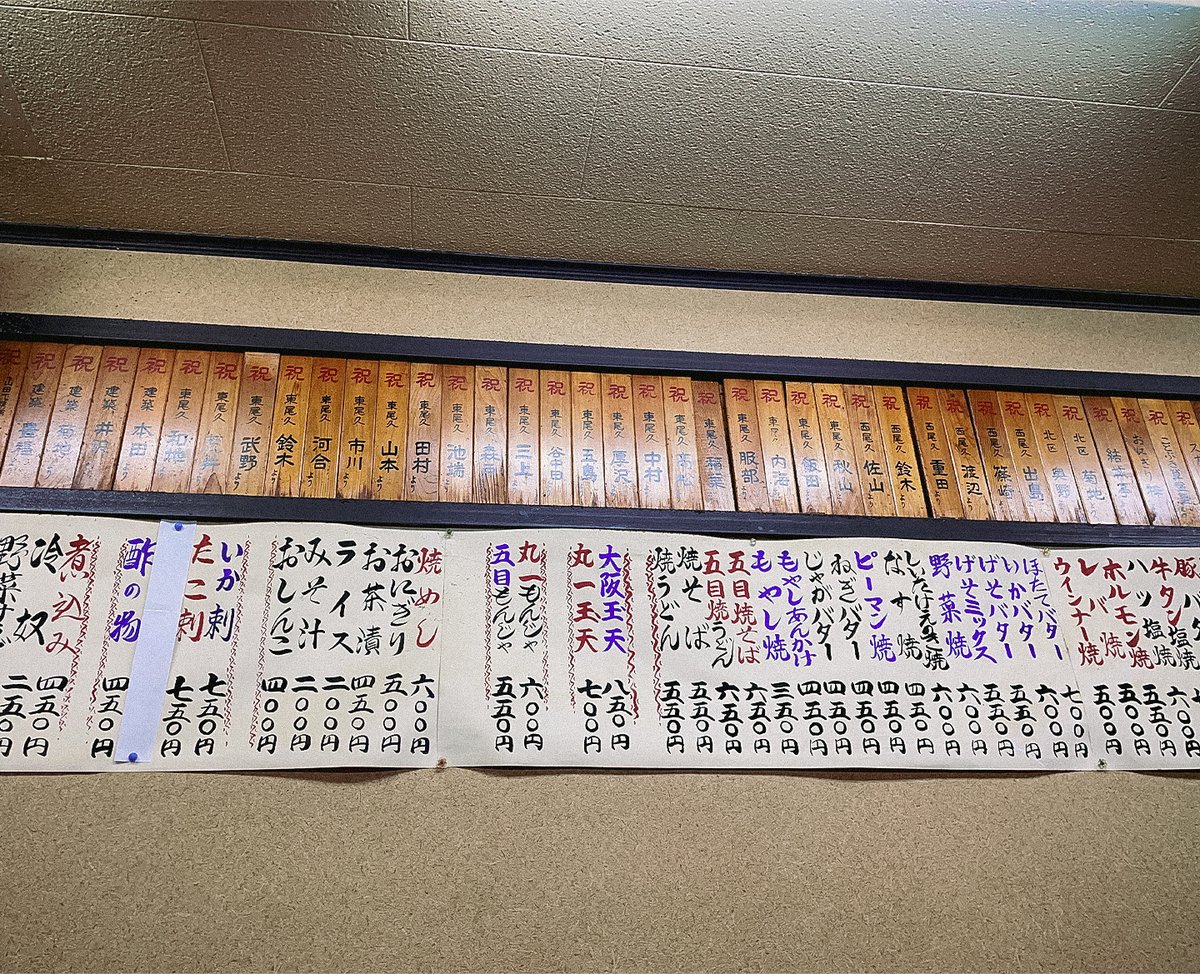 祝 北区 菊地より
祝 北区 奥野より
祝 西尾久 出島より
祝 西尾久 篠崎より
祝 西尾久 渡辺より
祝 西尾久 重田より
祝 西尾久 鈴木より
祝 西尾久 佐山より
祝 東尾久 秋山より
祝 東尾久 飯田より
祝 東尾久 内海より
祝 東尾久 服部より
祝 東尾久 稲葉より
祝 東尾久 高松より
祝 東尾久 中村より
祝 東尾久 厚沢より
祝 東尾久 五島より
祝 東尾久 谷田より
祝 東尾久 三上より
祝 東尾久
祝 東尾久 池端より
祝 東尾久 田村より
祝 東尾久 山本より
祝 東尾久 市川より
祝 東尾久 河合より
祝 東尾久 鈴木より
祝 東尾久 武野より
祝 東尾久
祝 東尾久 和地より
祝 建築 本田より
祝 建築 井沢より
祝 建築 菊地より
祝 建築
牛タン塩焼
ハツ塩焼 六〇〇円
ホルモン焼 五五〇円
レバー焼 五〇〇円
ウインナー焼 五〇〇円
ほたてバター 七〇〇円
いかバター 六〇〇円
げそバター 五五〇円
げそミックス 五五〇円
野菜焼 六〇〇円
しいたけ 焼 六〇〇円
なす焼 四五〇円
ピーマン焼 四五〇円
ねぎバター 四五〇円
じゃがバター 四五〇円
もやしあんかけ 四五〇円
もやし焼 三五〇円
五目焼そば 六五〇円
五目焼うどん 六五〇円
焼そば 五五〇円
焼うどん 五五〇円
大阪玉天 八五〇円
丸一玉天 七〇〇円
丸一もんじゃ 六〇〇円
五目もんじゃ 五五〇円
焼めし 六〇〇円
おにぎり 五〇〇円
お茶漬 四五〇円
ライス 二〇〇円
みそ汁 二〇〇円
おしんこ 四〇〇円
いか刺 七五〇円
たこ刺 七五〇円
酢の物 四五〇円
煮込み 四五〇円
冷奴 二五〇円